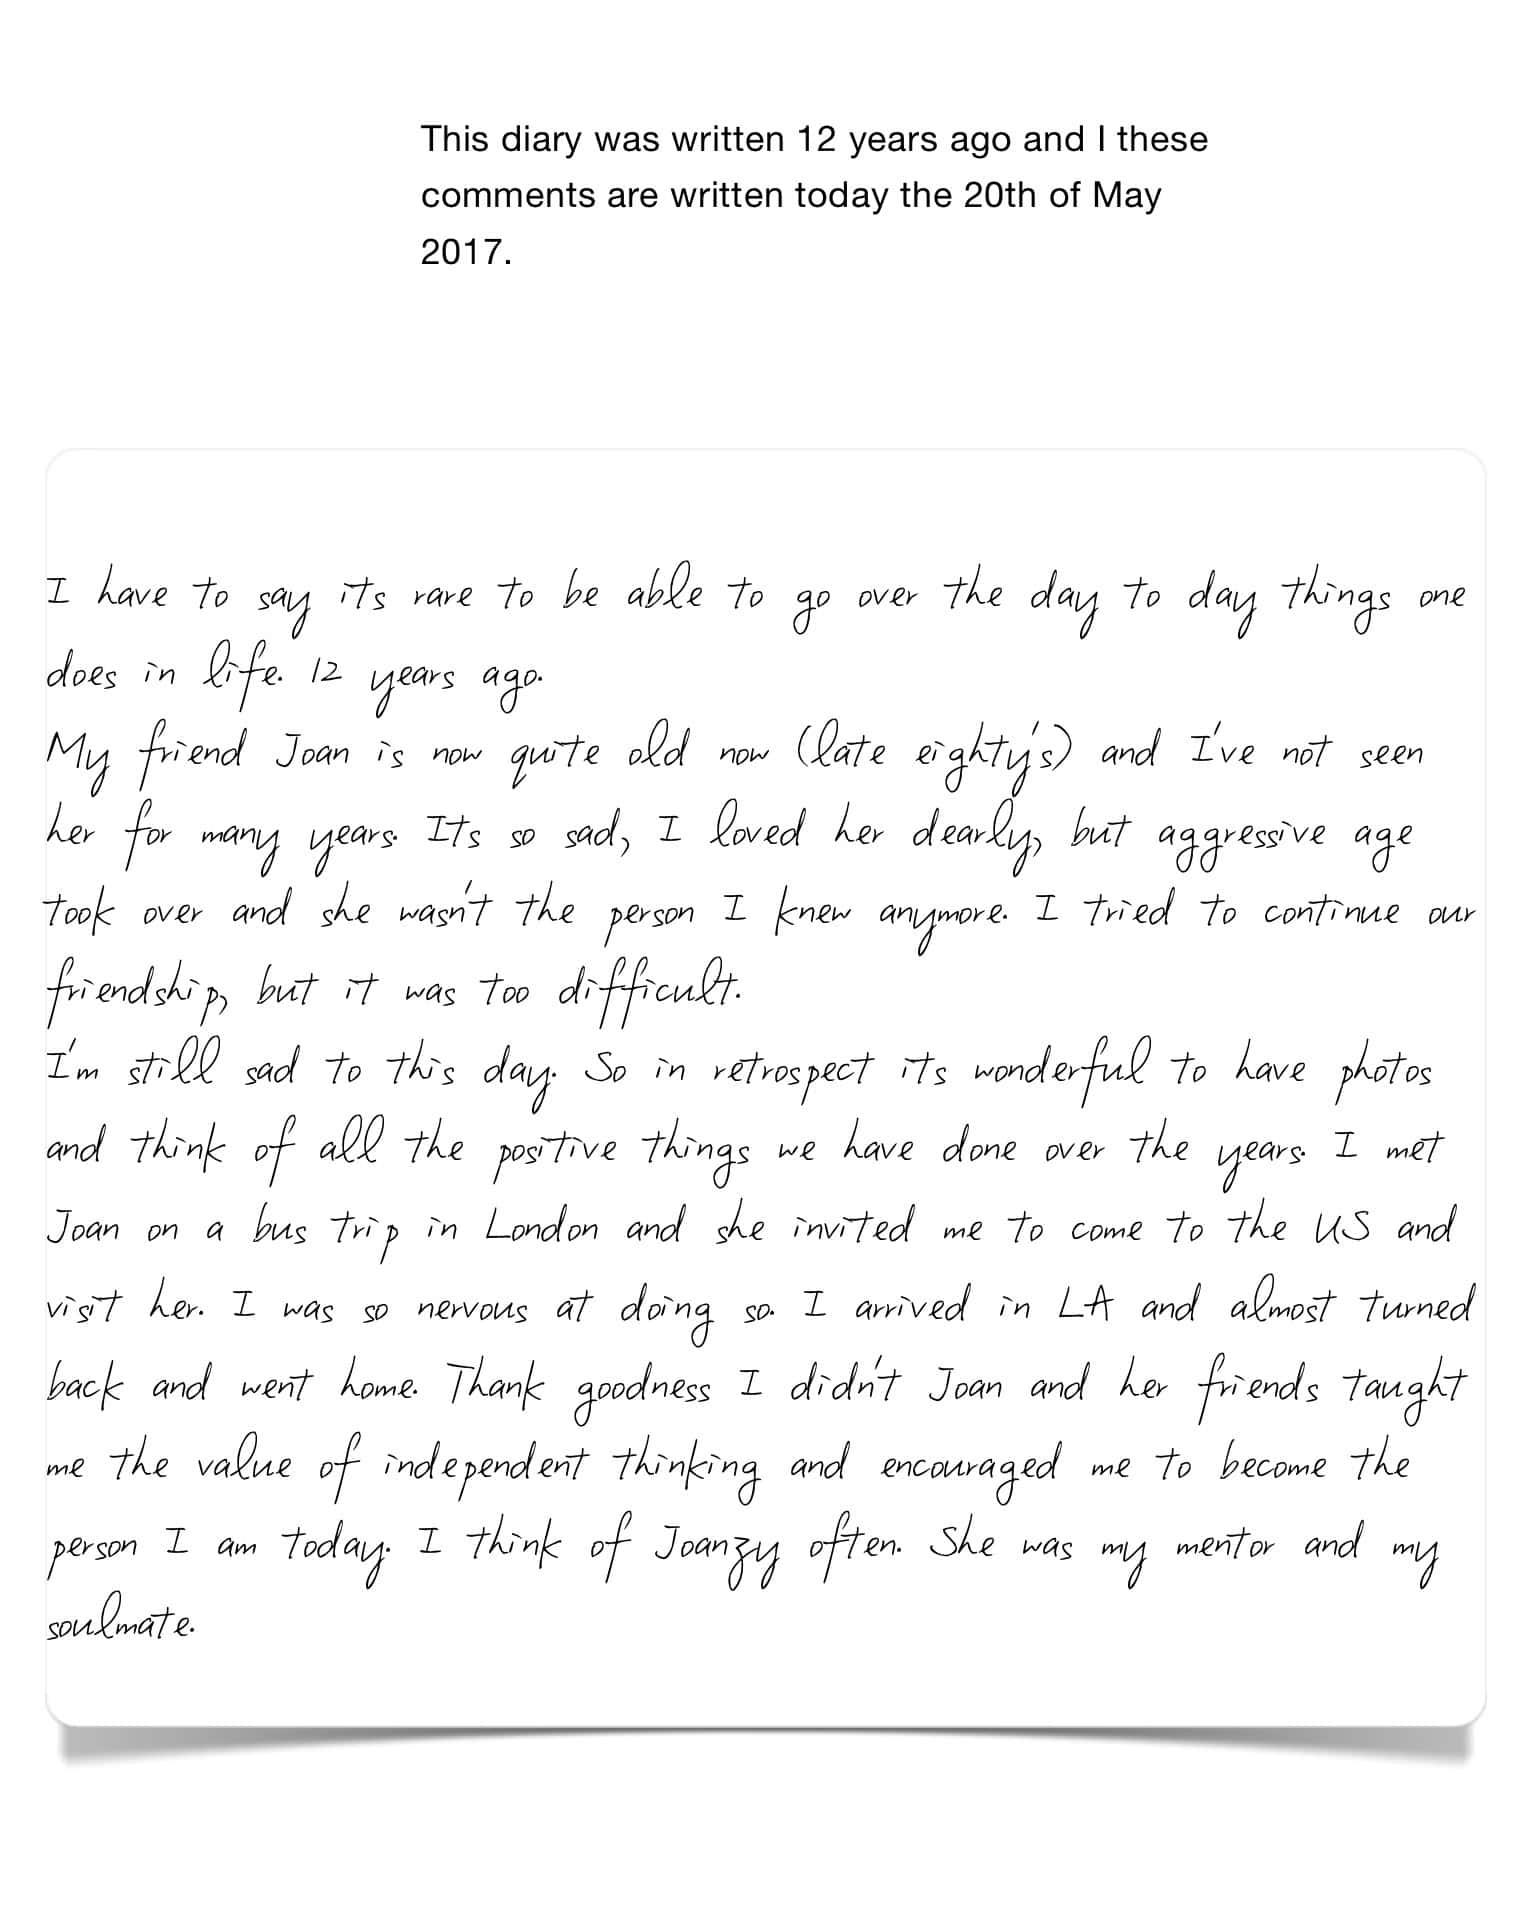 This diary was written 12 years ago and I these
comments are written today the 20th of May
2017.
I have to say its rare to be able to go over the day to day things one
does in life. 12 years ago.
My friend Joan is now quite old now (late eighty's) and I've not seen
her for many years. Its so sad, I loved her dearly, but aggressive age
took over and she wasn't the person I knew anymore. I tried to continue our
friendship, but it was too difficult.
I'm still sad to this day. So in retrospect its wonderful to have photos
and think of all the positive things we have done over the years. I met
Joan on a bus trip in London and she invited me to come to the US and
visit her. I was so nervous at doing so. I arrived in LA and almost turned
back and went home. Thank goodness I didn't Joan and her friends taught
me the value of independent thinking and encouraged me to become the
person I am today. I think of Joanzy often. She was my mentor and my
soulmate.